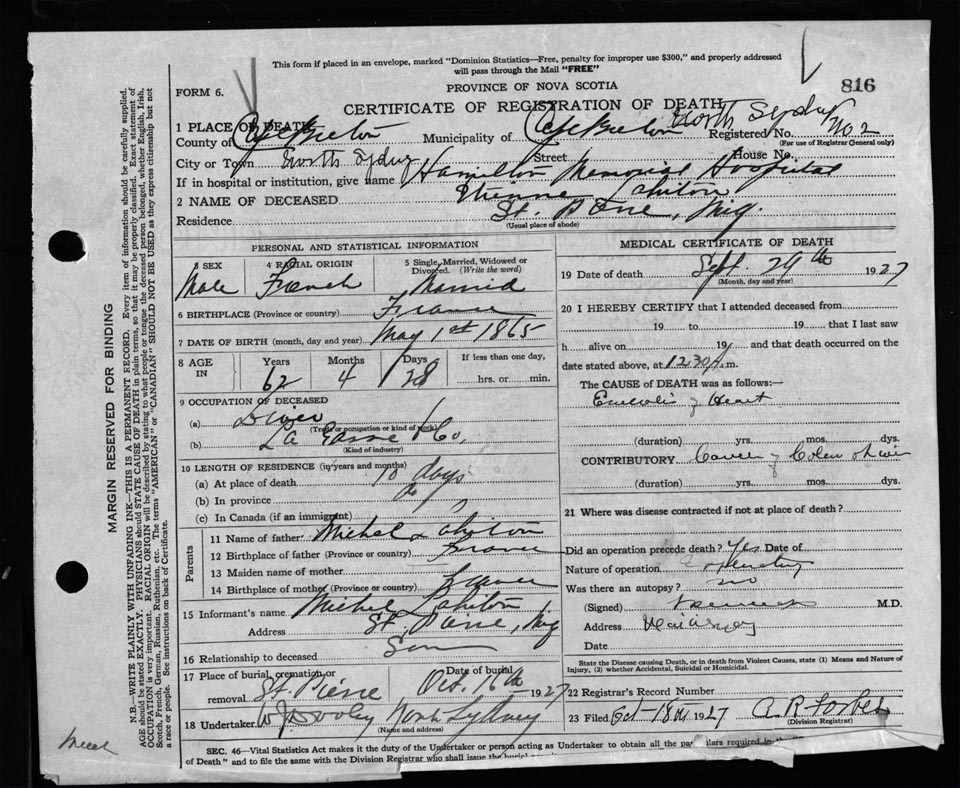 This form if placed in an envelope, marked "Dominion Statistics—Free, penalty for improper use $300," and properly addressed
will pass through the Mail "FREE"
816
FORM 6.
PROVINCE OF NOVA SCOTIA
CERTIFICATE OF REGISTRATION OF DEATH
North Sydney
1 PLACE OF DEATH
County of Cape Breton Municipality of Cape Breton Registered No. No 2
(For use of Registrar General only)
City or Town North Sydney Street House No.
If in hospital or institution, give name Hamilton Memorial Hospital
2 NAME OF DECEASED Etienne
Residence St. Pierre, Miq.
(Usual place of abode)
PERSONAL AND STATISTICAL INFORMATION
3 SEX 4 RACIAL ORIGIN 5 Single, Married, Widowed or Divorced. (Write the word)
Male French Married
6 BIRTHPLACE (Province or country) France
7 DATE OF BIRTH (month, day and year) May 1st 1865
8 AGE IN Years Months Days If less than one day,
62 4 28 hrs. or min.
9 OCCUPATION OF DECEASED
(a)
(Trade or occupation or kind of work)
(b) Co.
(Kind of industry)
10 LENGTH OF RESIDENCE (in years and months)
(a) At place of death 10 days
(b) In province
(c) In Canada (if an immigrant)
Parents
11 Name of father Michel
12 Birthplace of father (Province or country) France
13 Maiden name of mother
14 Birthplace of mother (Province or country) France
15 Informant's name Michel
Address St. Pierre, Miq
16 Relationship to deceased Son
17 Place of burial, cremation or removal St. Pierre Date of burial Oct. 16th 1927
18 Undertaker W J Dooley North Sydney
(Name and address)
MEDICAL CERTIFICATE OF DEATH
19 Date of death Sept. 29th 1927
(Month, day and year)
20 I HEREBY CERTIFY that I attended deceased from
19 to 19 that I last saw
h alive on 19 and that death occurred on the
date stated above, at 12.30 A.m.
The CAUSE OF DEATH was as follows:—
Emboli of Heart
(duration) yrs. mos. dys.
CONTRIBUTORY Cancer of Colon
(duration) yrs. mos. dys.
21 Where was disease contracted if not at place of death?
Did an operation precede death? Yes Date of
Nature of operation
Was there an autopsy? no
(Signed) M.D.
Address
Date
State the Disease causing Death, or in death from Violent Causes, state (1) Means and Nature of
Injury, (2) whether Accidental, Suicidal or Homicidal.
22 Registrar's Record Number
23 Filed Oct 18th 1927 A. R. Forbes
(Division Registrar)
SEC. 46—Vital Statistics Act makes it the duty of the Undertaker or person acting as Undertaker to obtain all the particulars required in the
of Death" and to file the same with the Division Registrar who shall issue the burial
MARGIN RESERVED FOR BINDING
N.B.—WRITE PLAINLY WITH UNFADING INK—THIS IS A PERMANENT RECORD. Every item of information should be carefully supplied.
AGE should be stated EXACTLY. PHYSICIANS should STATE CAUSE OF DEATH in plain terms, so that it may be properly classified. Exact statement of
OCCUPATION is very important. RACIAL ORIGIN will be described by stating to what people or tongue the deceased person belonged, whether English, Irish,
Scotch, French, German, Russian, Ruthenian, etc. The terms "AMERICAN" or "CANADIAN" SHOULD NOT BE USED as they express citizenship but not
a race or people. See instructions on back of Certificate.